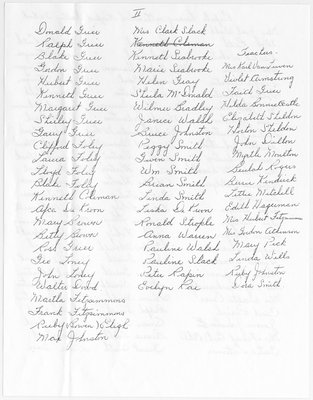 II
Donald Greer
Ralph Greer
Blake Greer
Gordon Greer
Hubert Greer
Kenneth Greer
Margaret Greer
Shirley Greer
Gary Greer
Clifford Foley
Laura Foley
Lloyd Foley
Blake Foley
Kenneth Coleman
Mary Brown
Betty Brown
Rod Greer
Geo Toney
John Toney
Walter Dodd
Martha Fitzsimmons
Frank Fitzsimmons
Ruby Brown
Max Johnston
Mrs. Clark Slack
Kenneth Coleman
Kenneth Seabrooke
Marie Seabrooke
Helen Gray
Sheila McDonald
Wilma Bradley
Janice Walsh
Bruce Johnston
Peggy Smith
Gwen Smith
Wm Smith
Brian Smith
Linda Smith
Ronald Strople
Anna Warren
Pauline Walsh
Pauline Slack
Peter Rapin
Evelyn Rae
Teachers.
Violet Armstrong
Faith Greer
Hilda Bonniecastle
Elizabeth Sheldon
Helen Sheldon
John Dillon
Myrtle Moulton
Beulah Rogers
Bernice Kendrick
Lettie Mitchell
Edith Hagerman
Mrs Hubert Fitzsimmons
Mrs Gordon
Mary Peck
Lunda Wells
Ruby Johnston
Iva Smith